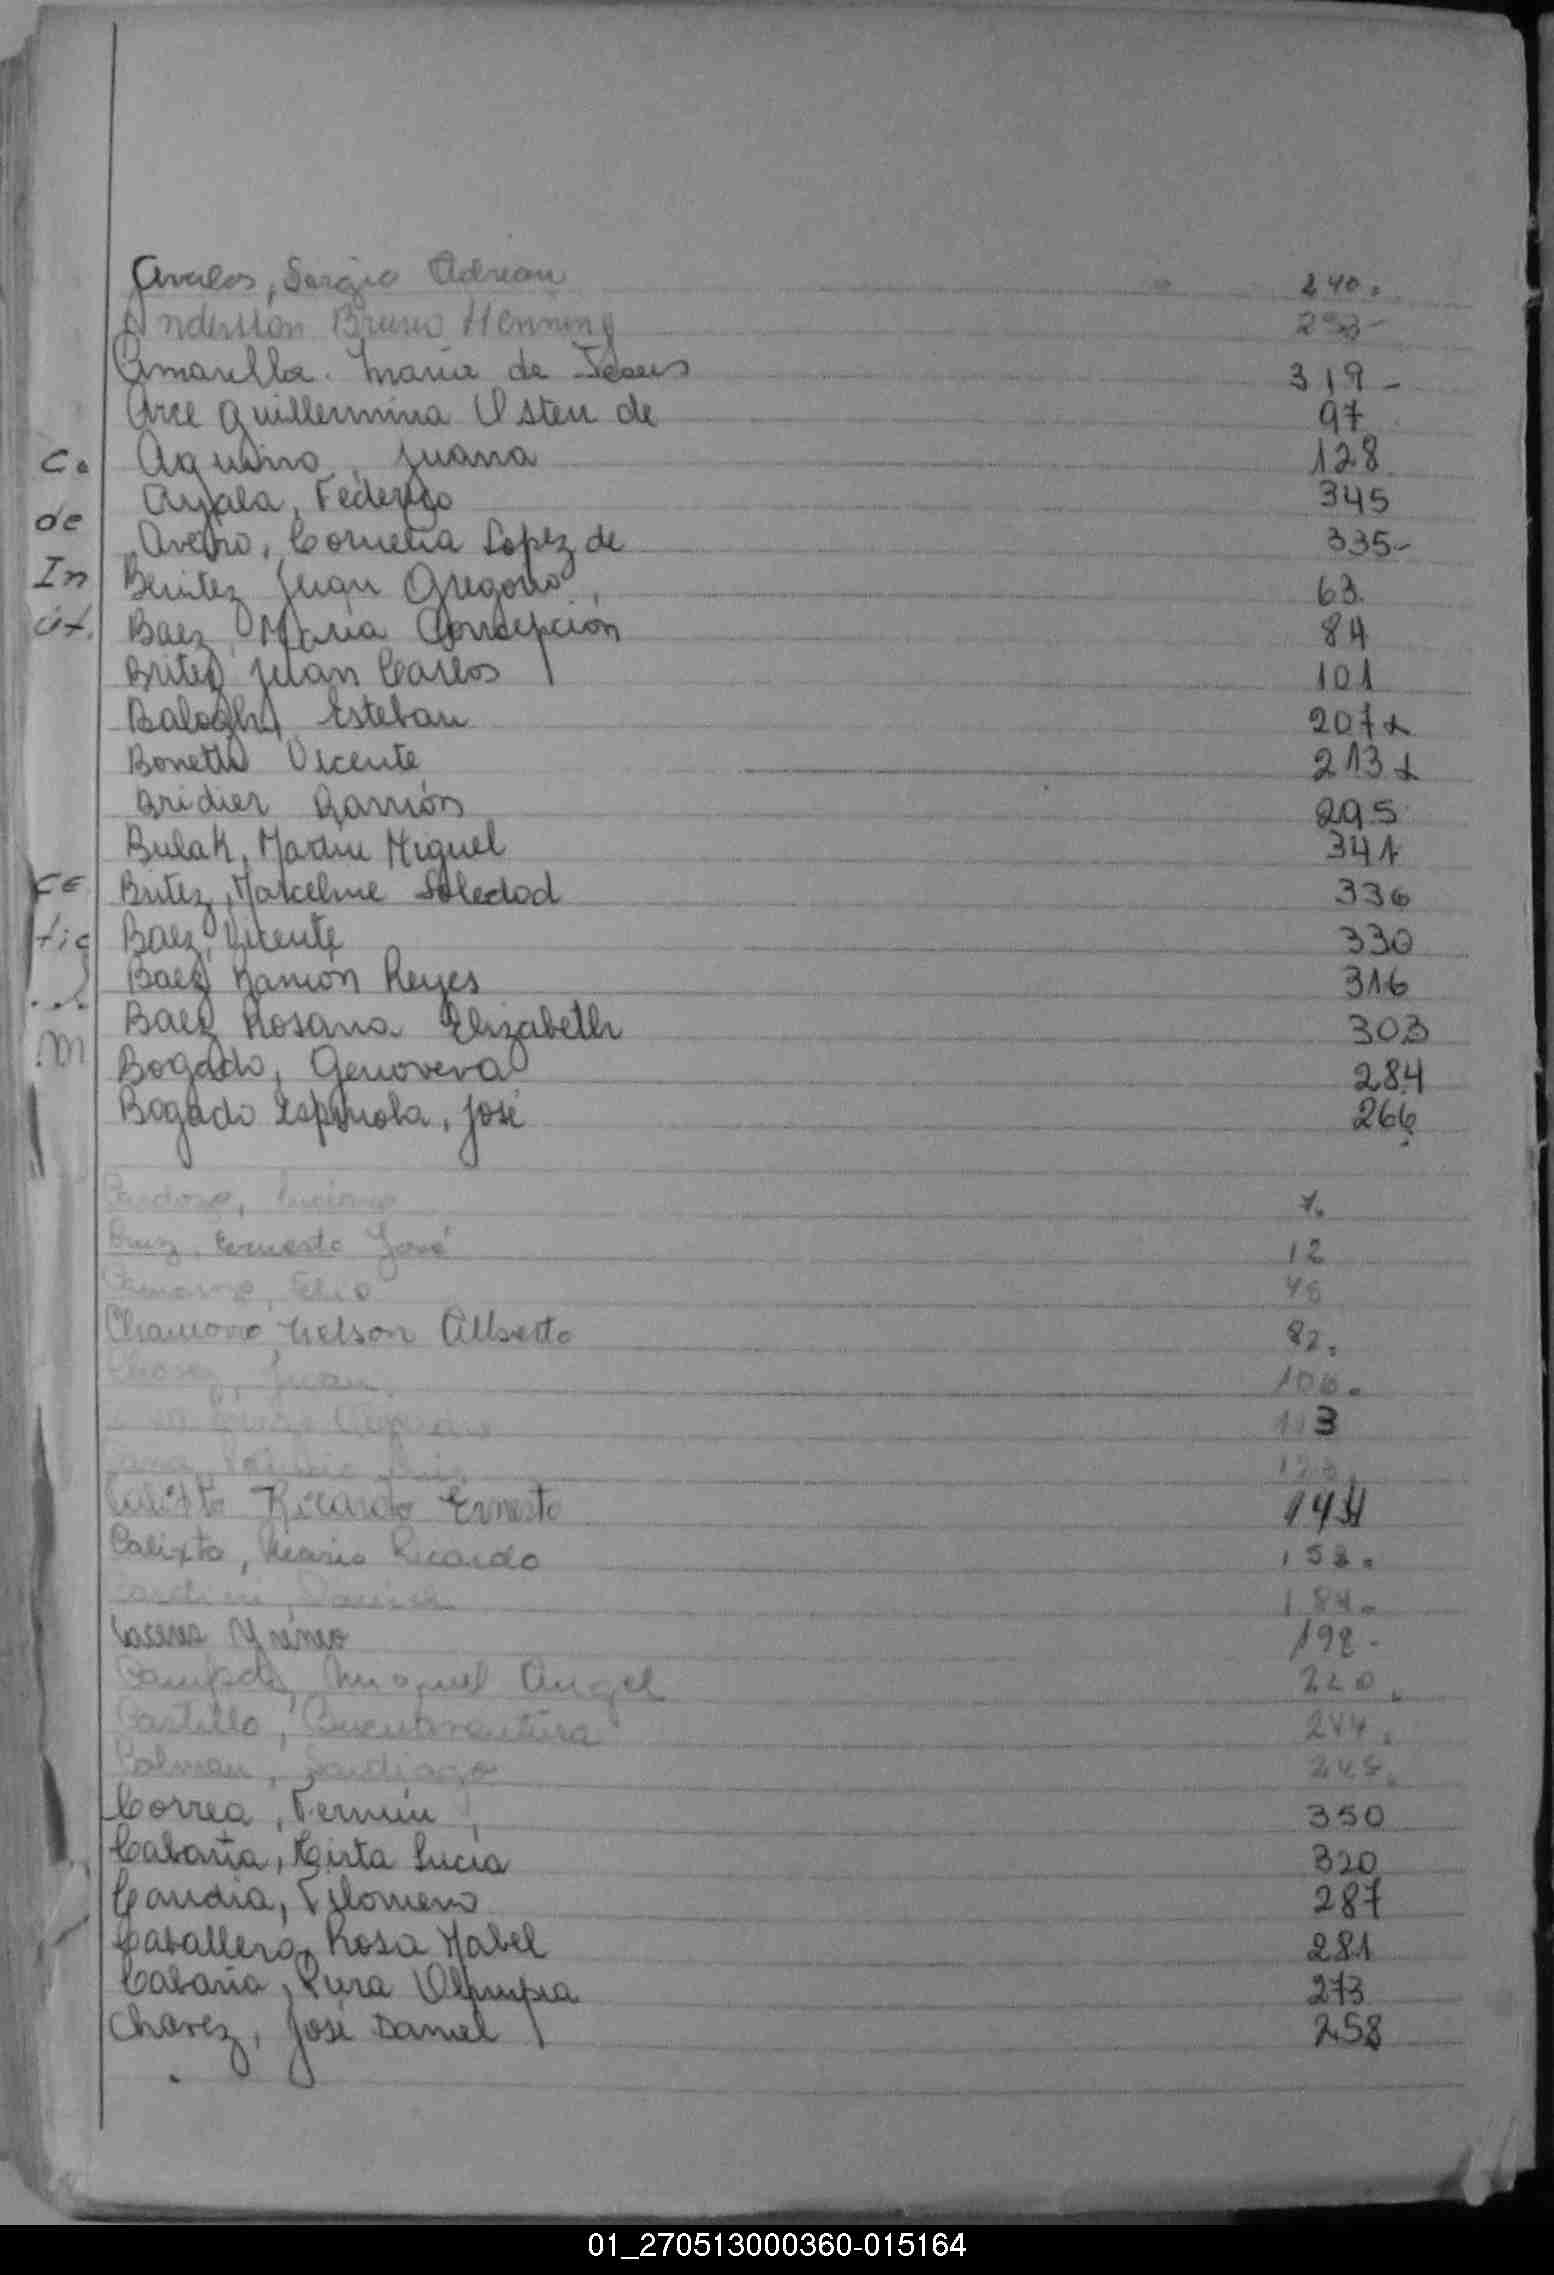 Avalos, Sergio Adrian 240.
Andersson Bruno Henning
Amarilla. Maria de Jesus 319-
Arce Guillermina Usteu de 97
Aquino, Juana 128
Ayala, Federico 345
Aveiro, Cornelia Lopez de 335-
Benitez Juan Gregorio, 63
Baez, Maria Concepción 84
Britez Juan Carlos 101
Balogh, Esteban 207
Bonetti Vicente 213
Bridier Ramón 295
Bulak, Martin Miguel 341
Britez, Marceline Soledad 336
Baez, Vicente 330
Baez Ramón Reyes 316
Baez Rosana Elizabeth 303
Bogado, Genoveva 284
Bogado Espinola, José 266
Cardozo, Luciano 7.
Cruz, Ernesto José 12
48
Chamorro Nelson Alberto 82.
Juan 106.
113
Calixto Ricardo Ernesto 144
Calixto, Mario Ricardo 152.
184.
Caseres Yrineo 192-
Miguel Angel 220.
Castillo, Buenaventura 244.
Colman, Santiago 248.
Correa, Fermin 350
Cabaña, Mirta Lucia 320
Candia, Filomeno 287
Caballero, Rosa Mabel 281
Cabaña, Pura Olimpia 273
Chavez, José Daniel 258
C.
de
In
út.
ce
tic
M
01_270513000360-015164